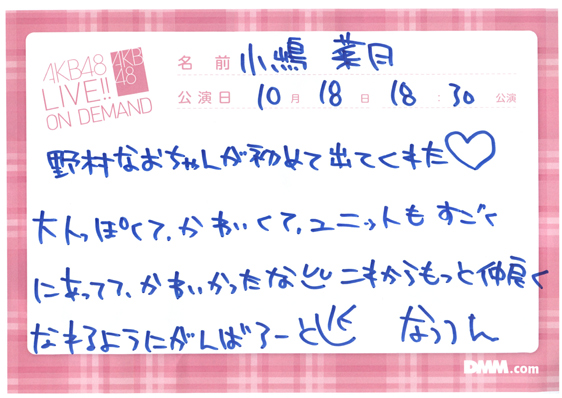 AKB48
LIVE!!
ON DEMAND
AKB
48
名前 小嶋 菜月
公演日 10月 18日 18:30公演
野村なおちゃんが初めて出てくれた♡
大人っぽくて、かわいくて、ユニットもすごく
にあってて、かわいかったな これからもっと仲良く
なれるようにがんばろーと なっつん
DMM.com